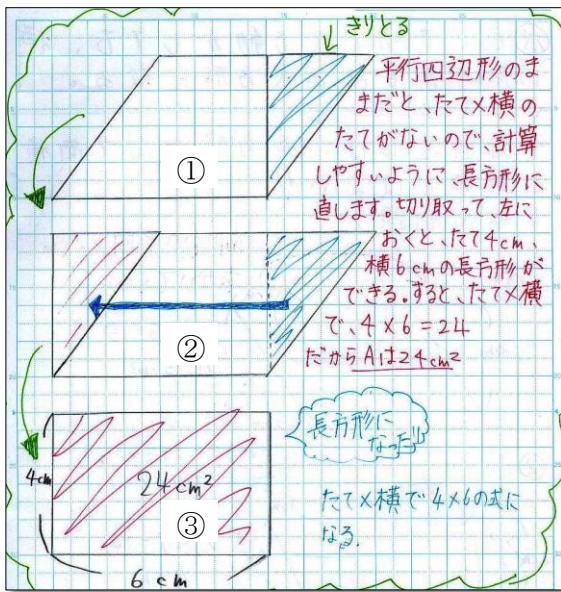 きりとる
平行四辺形のま
まだと、たて×横の
たてがないので、計算
しやすいように、長方形に
直します。切り取って、左に
おくと、たて4cm、
横6cmの長方形が
できる。すると、たて×横
で、4×6=24
だからAは24cm²
①
②
長方形に
なった!!
4cm
24cm²
③
6cm
たて×横で4×6の式に
なる。